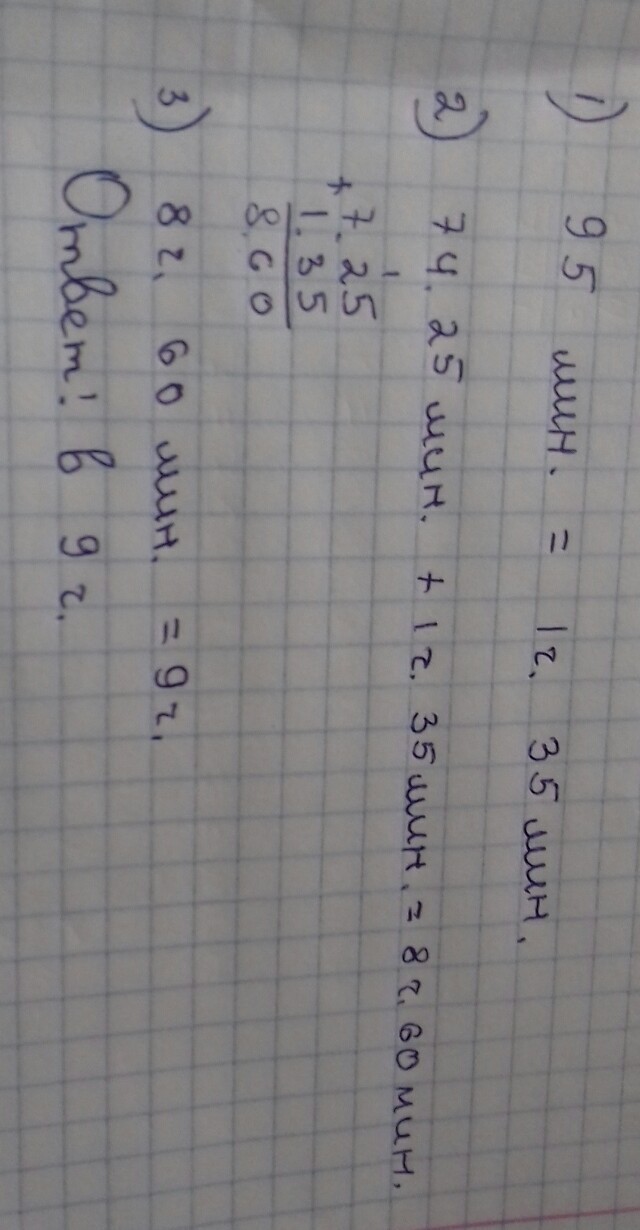 1) 95 мин. = 1 ч. 35 мин.
2) 7 ч. 25 мин. + 1 ч. 35 мин. = 8 ч. 60 мин.
1
+ 7.25
1.35
8.60
3) 8 ч. 60 мин. = 9 ч.
Ответ: в 9 ч.